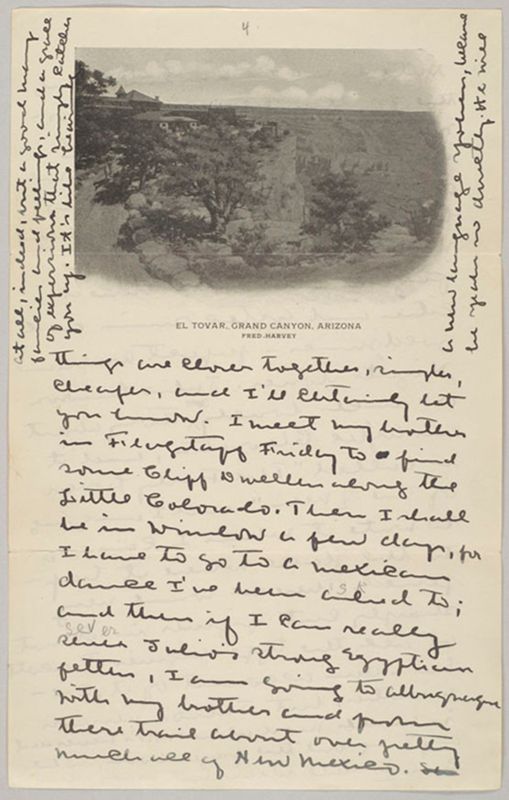 4
at all, indeed, but a good many
fancies and feelings, and a grace
of expression that simply catches
you up. It's like having
a new language
he
EL TOVAR, GRAND CANYON, ARIZONA
FRED HARVEY
things are closer together, simpler,
cheaper, and I'll certainly let
you know. I meet my brother
in Flagstaff Friday to find
some Cliff Dwellers along the
Little Colorado. Then I shall
be in Winslow a few days, for
I have to go to a Mexican
dance I've been asked to;
sk
and then if I can really
sever
sever Julio's strong Egyptian
fetters, I am going to Albuquerque
with my brother and from
there trail about over pretty
much all of New Mexico.